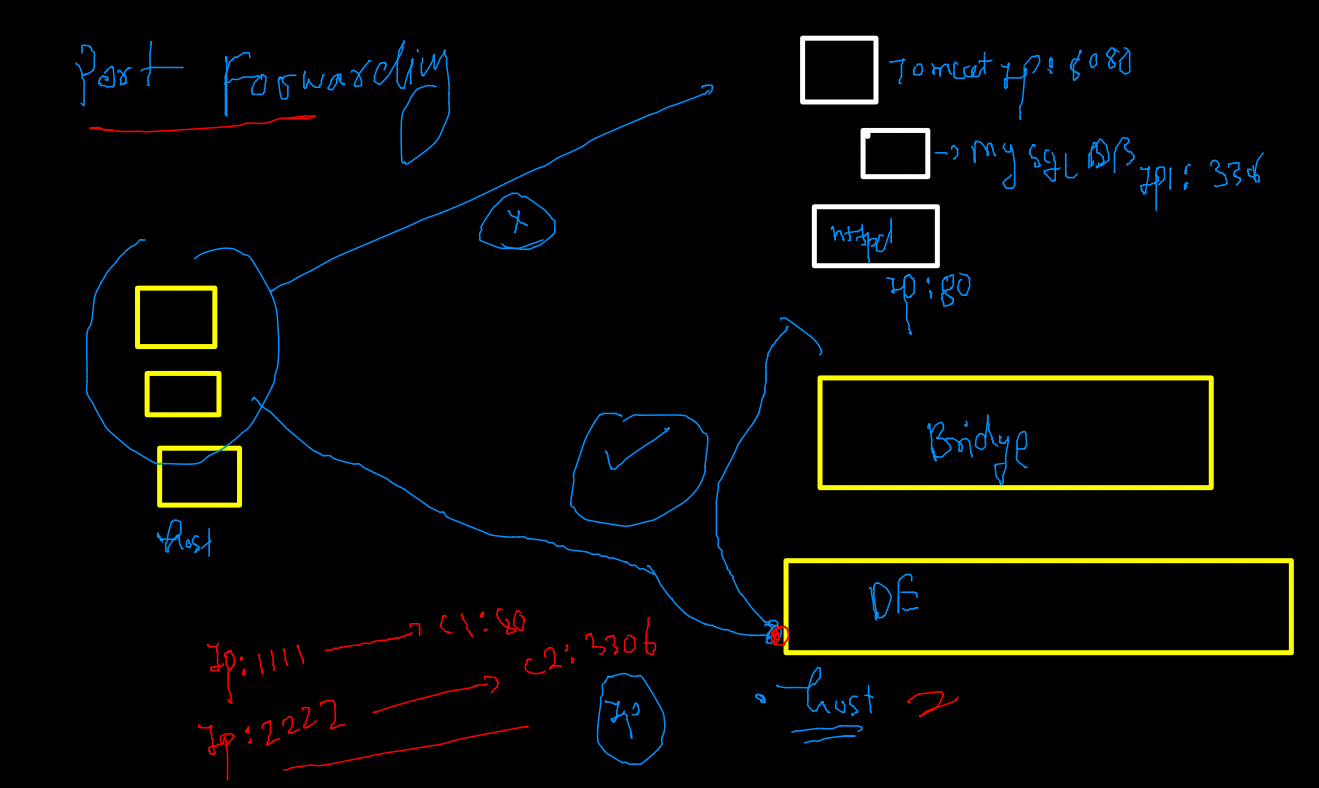 Port Forwarding
Tomcat Ip: 8080
-> my sql DB
Ip1: 336
httpd
Ip: 80
x
Bridge
Host
DE
Ip: 1111 -> C1: 80
Ip: 2222 -> C2: 3306
Ip
. host 2